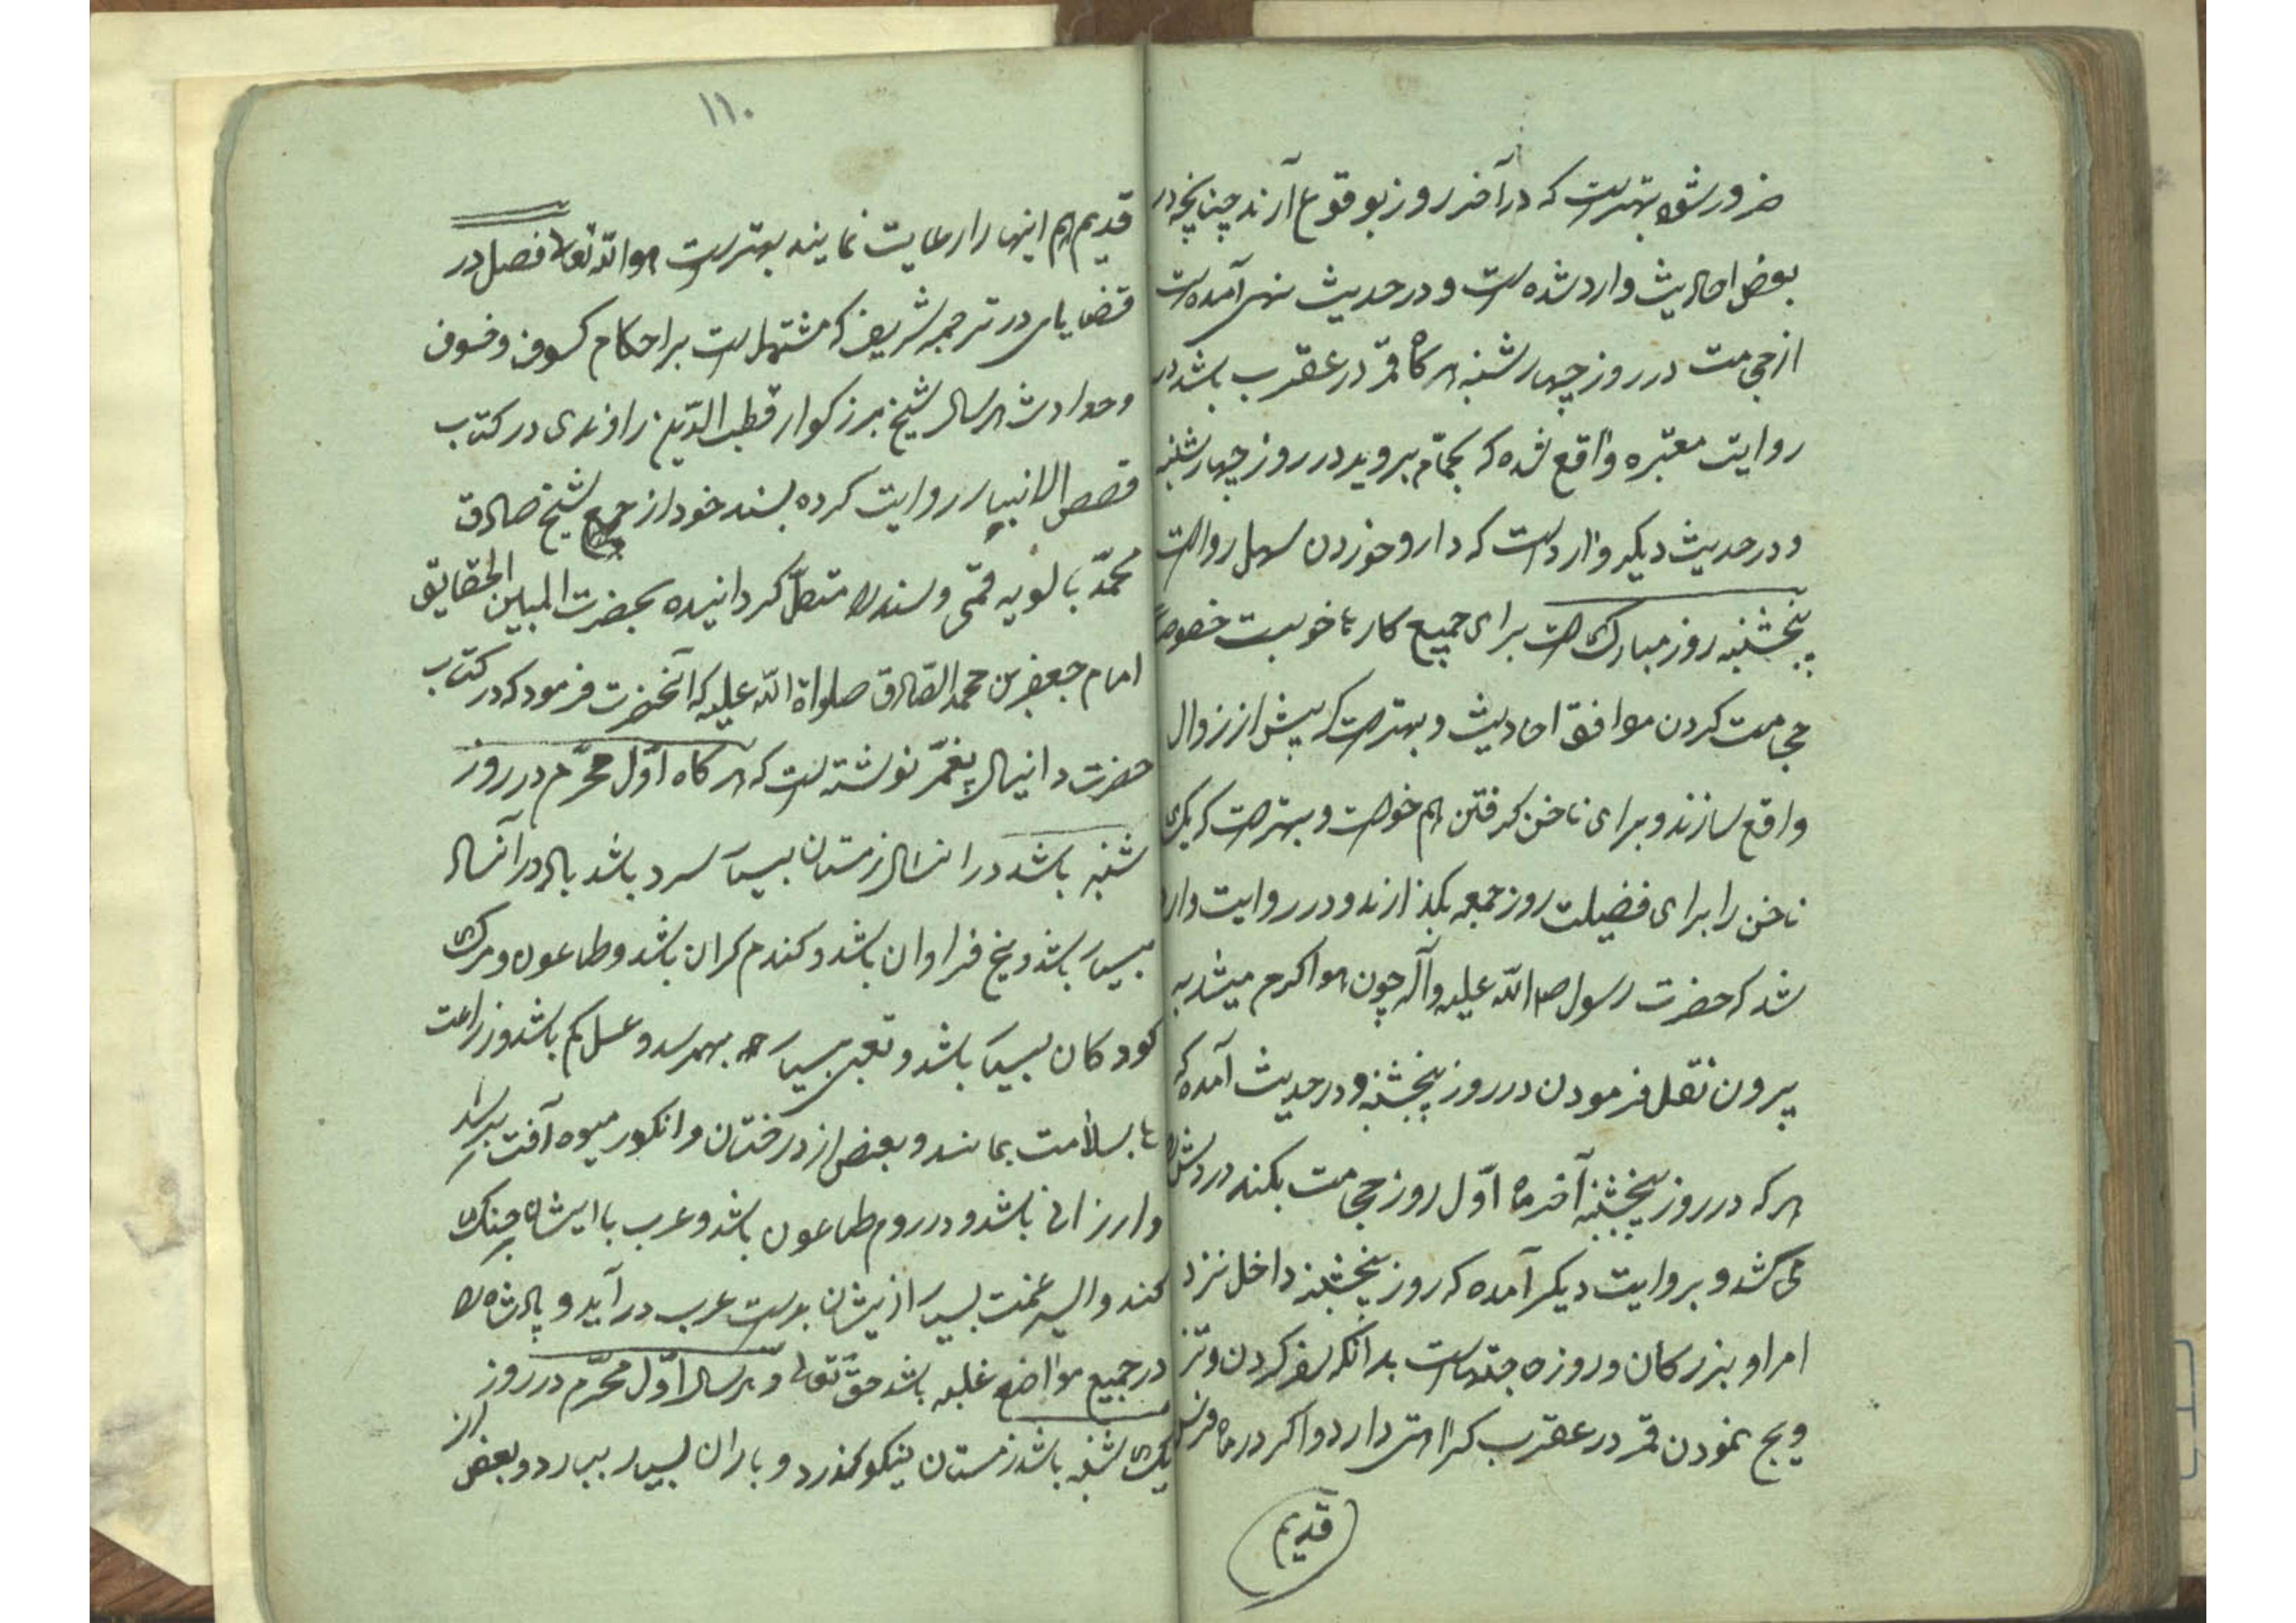 ضرور شود بهترست که در آخر روز بوقوع آرند چنانچه در
بعض احادیث وارد شده است و در حدیث نهی آمده است
از حجامت در روز چهارشنبه هرگاه قمر در عقرب باشد در
روایت معتبره واقع شده که بحمّام بروید در روز چهارشنبه
و در حدیث دیگر وارد است که دارو خوردن سهل رواست
پنجشنبه روز مبارک است برای جمیع کارها خوبست خصوصاً
حجامت کردن موافق احادیث و بهترست که پیش از زوال
واقع سازند و برای ناخن گرفتن هم خوبست و بهترست که یک
ناخن را برای فضیلت روز جمعه بگذارند و در روایت وارد
شد که حضرت رسول صلی الله علیه و آله چون هوا گرم میشد به
بیرون نقل فرمودن در روز پنجشنبه و در حدیث آمده که
هر که در روز پنجشنبه آخر ماه اوّل روز حجامت بکند دردش را
می کشد و بروایت دیگر آمده که روز پنجشنبه داخل نزد
امرا و بزرگان و روزه جقه است بدانکه سفر کردن و تز
ویج نمودن قمر در عقرب کراهتی دارد و اگر در ماه فرس
قدیم
١١٠
قدیم هم اینها را رعایت نمایند بهترست هو الله تعالی فصل در
قضایای در ترجمه شریف که مشتمل است بر احکام کسوف و خسوف
و حوادث هر سال شیخ بزرگوار قطب الدّین راوندی در کتاب
قصص الانبیا روایت کرده بسند خود از جمع شیخ صادق
محمّد بابویه قمّی و سند را متصلّ گردانیده بحضرت المبین الحقایق
امام جعفر بن محمد الصّادق صلواة الله علیه که آنحضرت فرمود که در کتاب
حضرت دانیال پیغمّر نوشته است که هرگاه اوّل محرّم در روز
شنبه باشد در انسال زمستان بسیار سرد باشد باد در آنسال
بسیار باشد و یخ فراوان باشد و کندم کران باشد و طاعون و مرک
کودکان بسیار باشد و تعبی بسیار بهمرسد و عسل کم باشد و زراعت
ها بسلامت بمانند و بعض از درختان و انکور میوه آفت برسد
و ارزانی باشد و در روم طاعون باشد و عرب با ایشان جنک
کنند و اسیر غنمت بسیار از یشان بدست عرب در آید و پادشاه را
در جمیع مواضع غلبه باشد حقّ تعالی و هر سال اوّل محرّم در روز
یک شنبه باشد زمستان نیکو گذرد و باران بسیار ببارد و بعض از